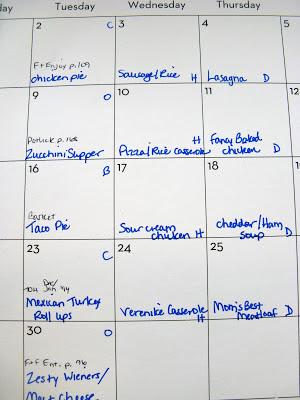 day Tuesday Wednesday Thursday
2 C 3 4 5
F+Enjoy p. 109
chicken pie Sausage/Rice H Lasagna D
9 O 10 11 12
Potluck p. 168 H Fancy Baked
Zucchini Supper Pizza/Rice casserole chicken D
16 B 17 18 19
Basket
Taco Pie Sour cream cheddar/Ham
chicken H soup D
23 C 24 25
TOH Jan '94
Mexican Turkey Verenike Casserole Mom's Best
Roll ups H Meatloaf D
30 O
F+F Ent. p. 96
Zesty Wieners/
Mac+Cheese